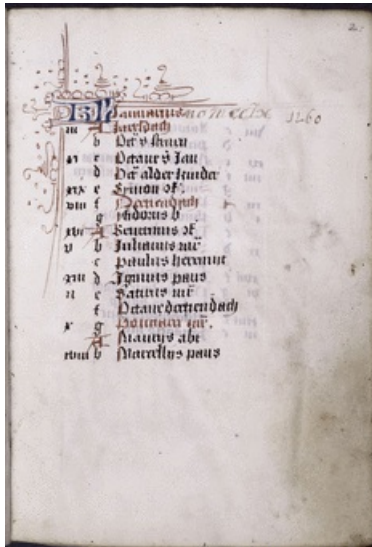 2
KL Januarius MOMCCLX 1260
iii A Jaersdach
b Oct' s steuen
xi c Octaue s Jan
d Oct' alder kinder
xix e Symon bisc
viii f Dertiendach
g ysidorus b
xvi A
v b Julianus mr
c Paulus heremit
xiii d Iginius paus
ii e Satirus mr
f Octaue dertiendach
x g mr
A Maurus abt
xviii b Marcellus paus